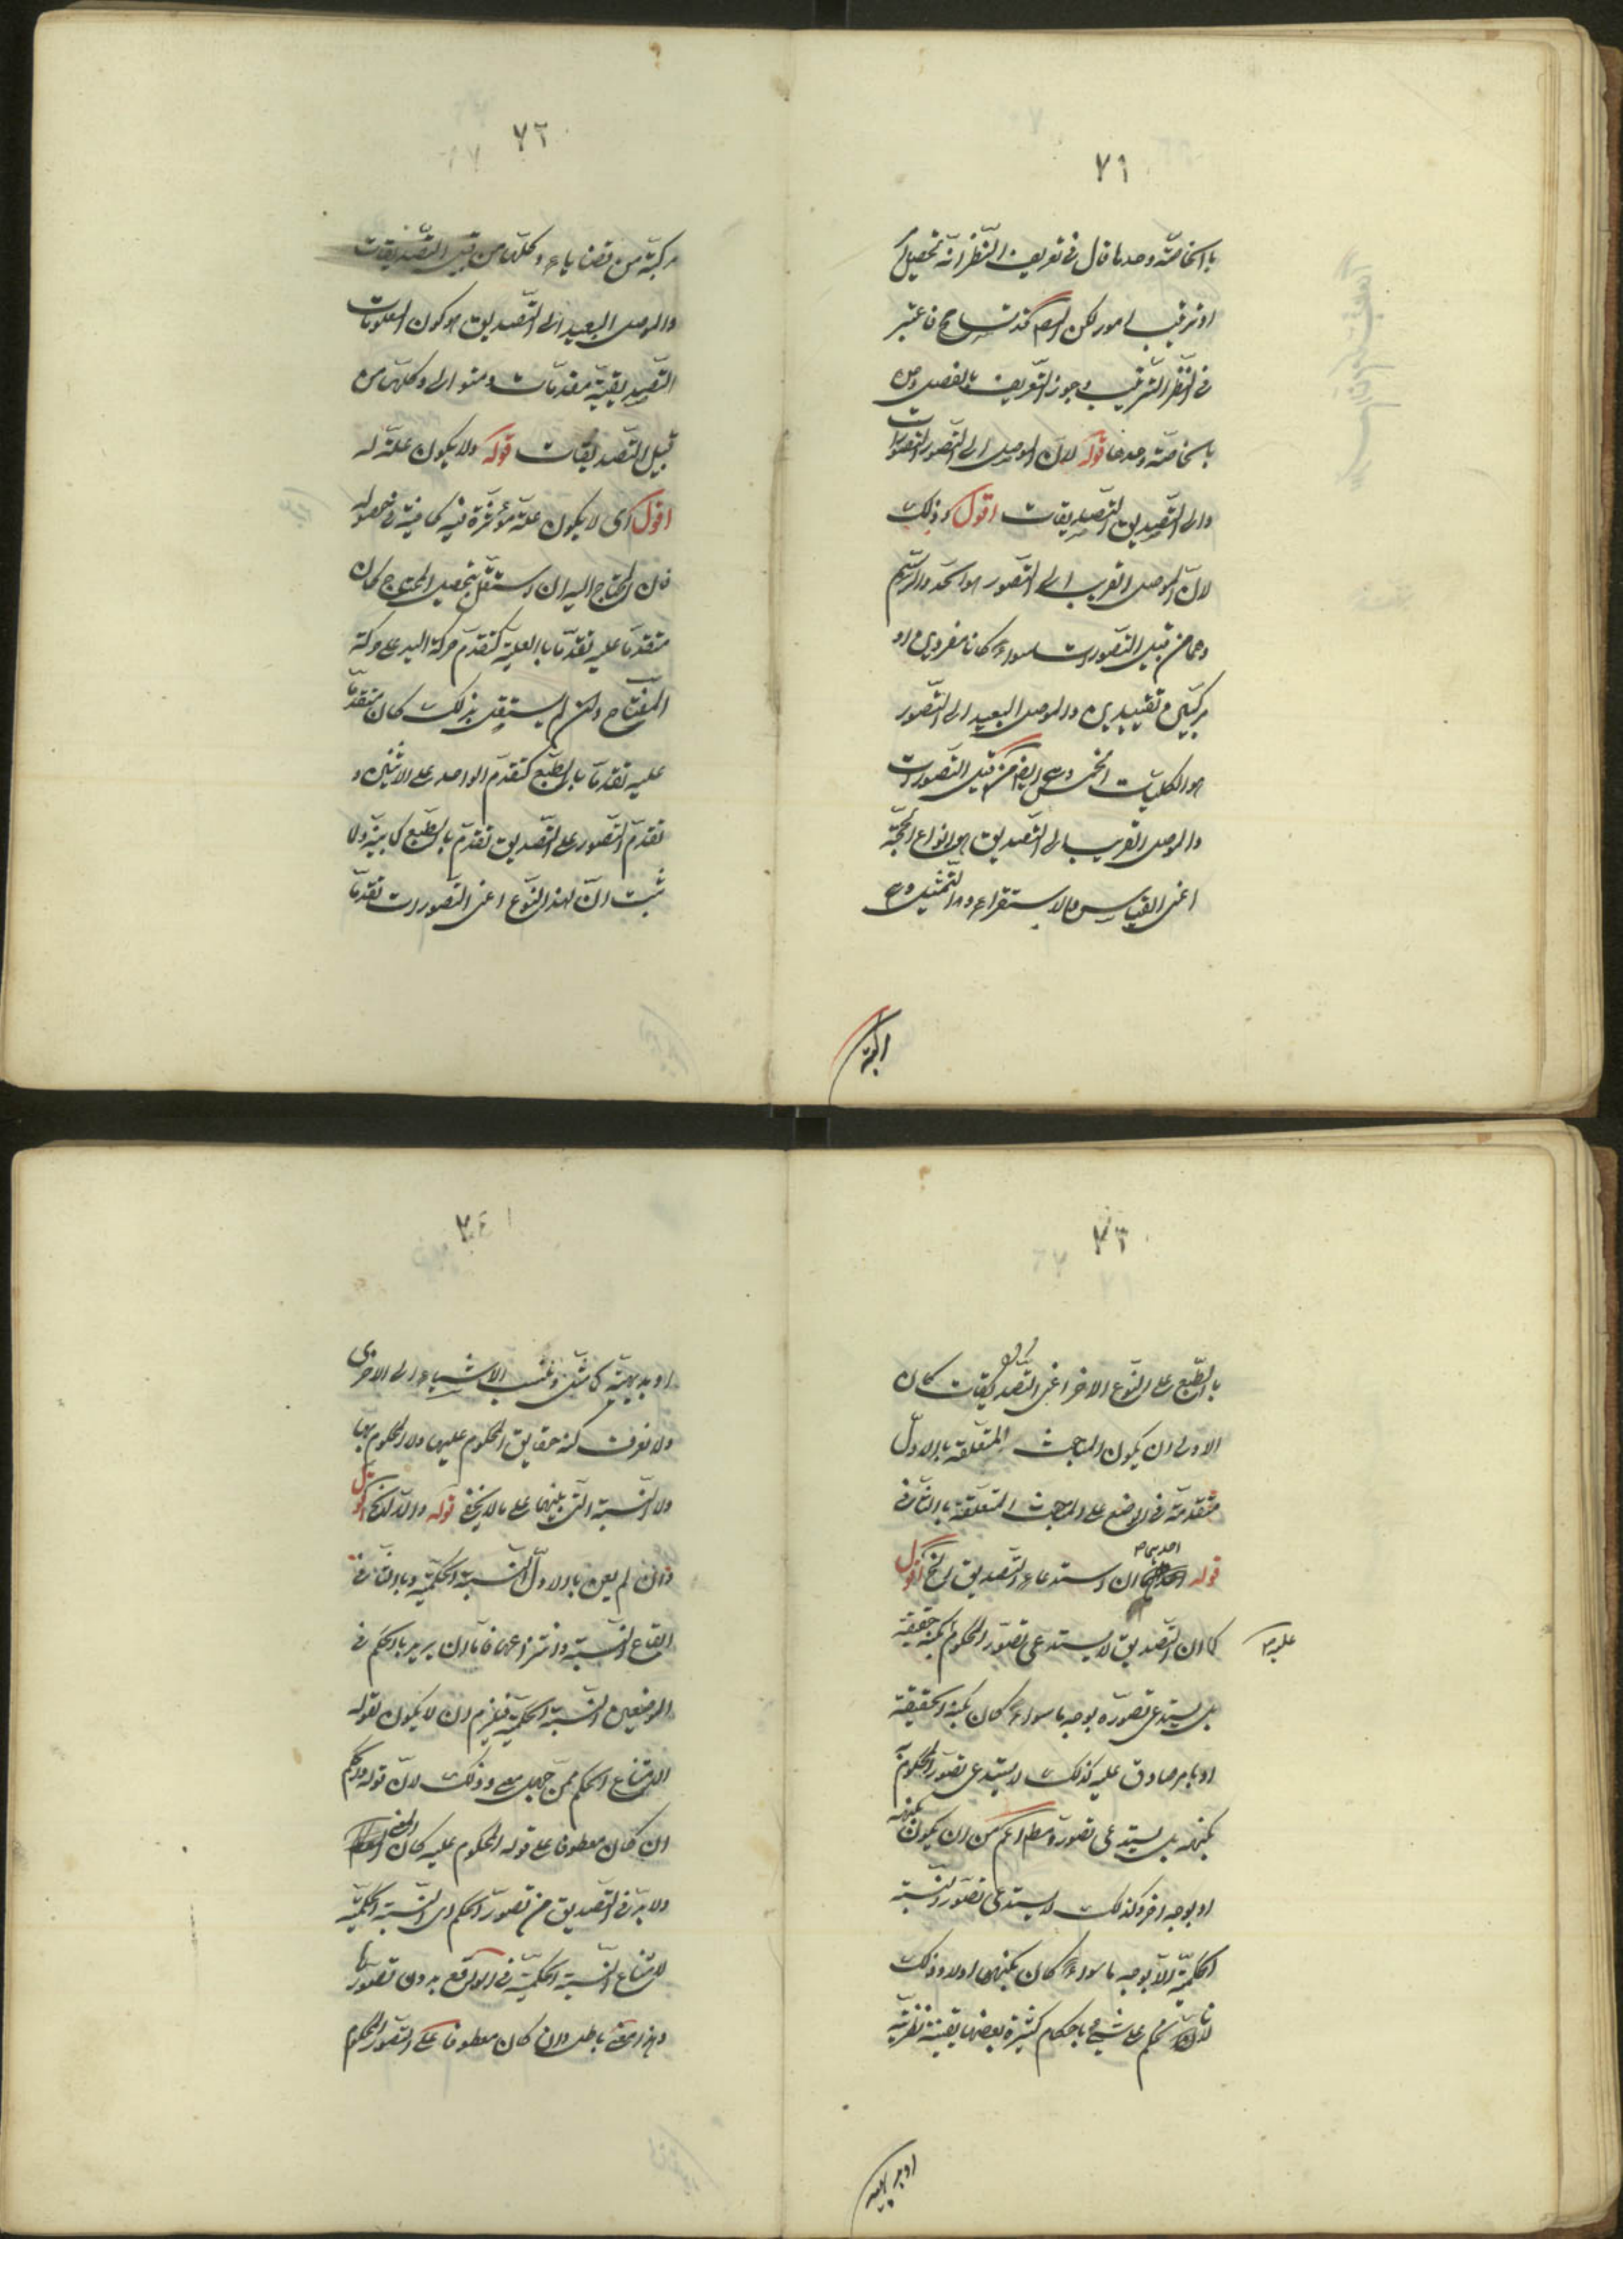 ٧١
بالخاصّة وحدها قال فى تعريف النّظر انّه تحصيل امر
او ترتيب امور لكن المصـ تسامح فاعتبر
فى النّظر الترتيب وجوز التّعريف بالفصل وحده
بالخاصّة وحدها قوله لانّ الموصل الى التّصور التصورات
والى التّصديق التّصديقات اقول وذلك
لانّ الموصل القريب الى التّصور هو الحد والرّسم
وهما من قبيل التصورات سواء كانا مفردين او
مركبين تقييديين والموصل البعيد الى التّصور
هو الكليات الخمس وهى ايضا من قبيل التصورات
والموصل القريب الى التّصديق هو انواع الحجّة
اعنى القياس والاستقراء والتّمثيل وهى
مركبة
٧٢
مركبّة من قضايا وكلّها من قبيل التّصديقات
والموصل البعيد الى التّصديق هو كون المعلومات
التّصديقيّة مقدمّات وكلّها من
قبيل التّصديقات قوله ولا يكون علّة له
اقول اى لا يكون علّة مؤثّرة فيه كافية فى حصوله
فان المحتاج اليه ان استقلّ بتحصيل المحتاج كان
متقدمّا عليه تقدمّا بالعليّة كتقدّم حركة اليد على حركة
المفتاح وان لم يستقل بذلك كان متقدمّا
عليه تقدمّا بالطّبع كتقدّم الواحد على الاثنين و
تقدّم التّصور على التّصديق تقدّم بالطّبع كما بيّنه ولا
ثبت انّ لهذا النّوع اعنى التّصورات تقدمّا
٧٣
بالطّبع على النّوع الاخر اعنى التّصديقات كان
الاولى ان يكون المباحث المتعلّقة بالاول
متقدمّة فى الوضع على المباحث المتعلّقة بالثّانى
قوله احديهما ان استدعاء التّصديق الخ اقول
كما ان التّصديق لا يستدعى تصوّر المحكوم بكنه حقيقته
عليه
بل يستدعى تصوّره بوجه ما سواء كان بكنه الحقيقة
او بامر صادق عليه كذلك لا يستدعى تصوّر المحكوم به
بكنهه بل يستدعى تصوره مطم اعم من ان يكون بكنهه
او بوجه اخر وكذلك لا يستدعى تصوّر النّسبة
الحكميّة الّا بوجه ما سواء كان بكنهها او لا وذلك
لانا نحكم على شىء باحكام كثيرة بعضها يقينيّة نظريّة
او بديهية
٧٤
او بديهيّة كما مثل نسب الاشياء الى الاخرى
ولا نعرف كنه حقايق المحكوم عليها ولا المحكوم بها
ولا النّسبة الّتى بينهما على ما لا يخفى قوله والّا لخ اقول
وان لم يعن بالاول النّسبة الحكميّة وبالثّانى
ايقاع النّسبة وانتزاعها فامّا ان يريد بالحكم فى
الموضعين النّسبة الحكميّة فيلزم ان لا يكون لقوله
لامتناع الحكم ممّن جهل معنى وذلك لانّ قوله والحكم
ان كان معطوفا على قوله المحكوم عليه كان المعنى
ولا بدّ فى التّصديق من تصوّر الحكم اى النّسبة الحكميّة
لامتناع النّسبة الحكميّة فى الواقع بدون تصوّرها
وهذا المعنى باطل وان كان معطوفا على التّصوّر المحكوم